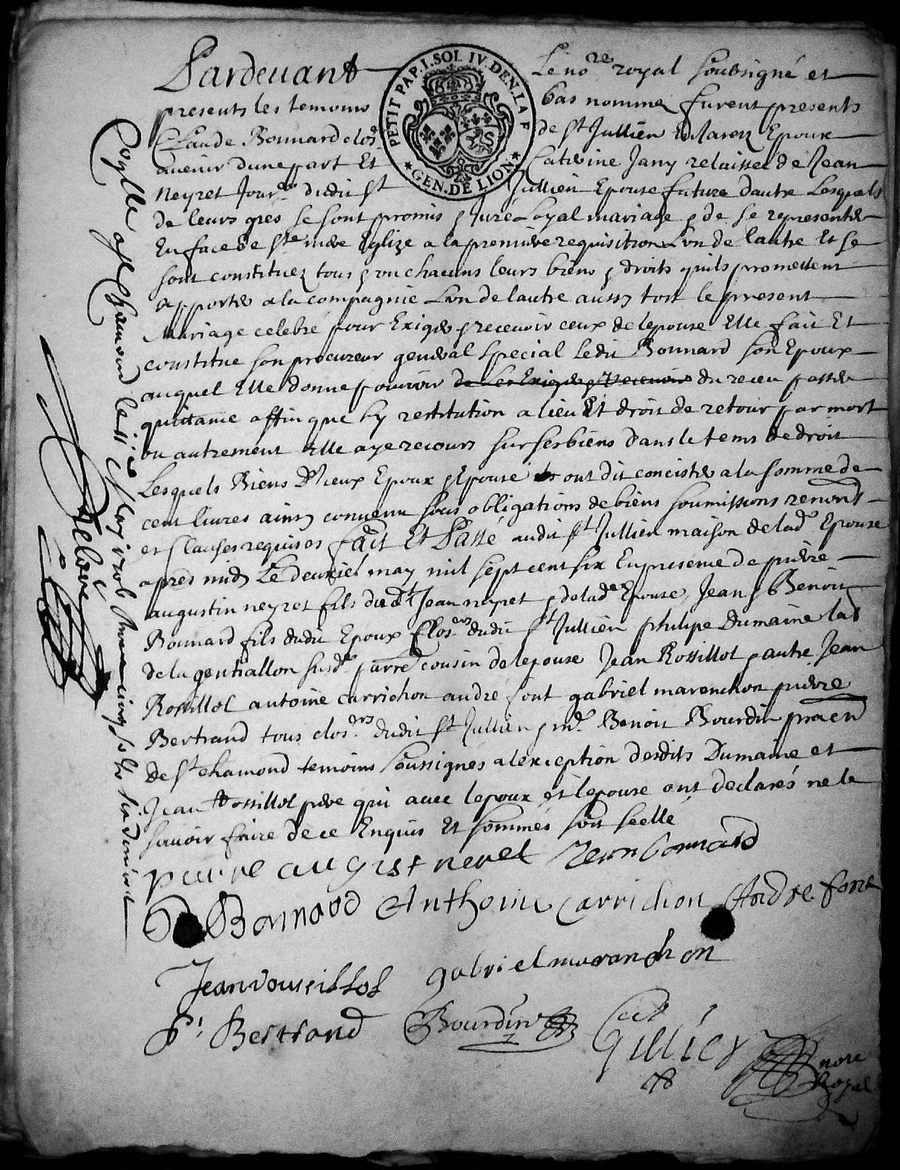 Pardevant Le no.re royal soubsigné et
presents les temoins bas nommez furent presents
Claude Bonnard clos.r de St Jullien Epoux
avenir d'une part Et Catherine Jany relaissee de Jean
Neyret Jour.er dudit St Jullien Epouse future dautre Lesquels
de leurs gres se sont promis & Juré Loyal mariage & de se representer
En face de Ste mere Eglize a la premiere requisition L'un de lautre Et se
sont constituez tous & un chacuns leurs biens & droits quils promettent
apporter a la compagnie L'un de lautre aussy tost le present
Mariage celebré pour Exiger & recevoir ceux de lepouse Elle fait Et
constitue son procureur general special ledit Bonnard son Epoux
auquel Elle donne pouvoir de les Exiger & recevoir du receu passer
quittance affin que sy restitution a lieu Et droit de retour par mort
ou autrement Elle aye recours sur ses biens dans le tems de droit
Lesquels Biens D'iceux Epoux & Epouse ont dit concister a la somme de
cent livres ainsy convenu sous obligations de biens soumissions renont
et Clauses requises fait Et Passé audit St Jullien maison de lad. Epouse
apres midy Le deuxie may mil sept cent six En presence de pierre
augustin neyret fils dud.t Jean neyret & de lade Epouse, Jean & Benoit
Bonnard fils dudit Epoux Clos.rs dudit St Jullien philipe Dumaine lab
de la gentiallon susd. cousin de lepouse Jean Rossillol & autre Jean
Rossillol antoine carrichon andre font gabriel maronchon pierre
Bertrand tous clos.rs dudit St Jullien & m. Benoit Bourdin praen
de St chamond temoins soussignes a lexception desdits Dumaine et
Jean Rossillol pere qui avec lepoux et lepouse ont declarés ne le
scavoir faire de ce Enquis Et sommés soit scellé
pierre augist neret Jean bonnard
B Bonnard Anthoine carrichon Andre font
Jean rousillol gabriel maranchon
p. Bertrand Bourdin Gillier
nore
Royal
PETIT PAP. I. SOL IV. DEN. LA F
GEN. DE LION